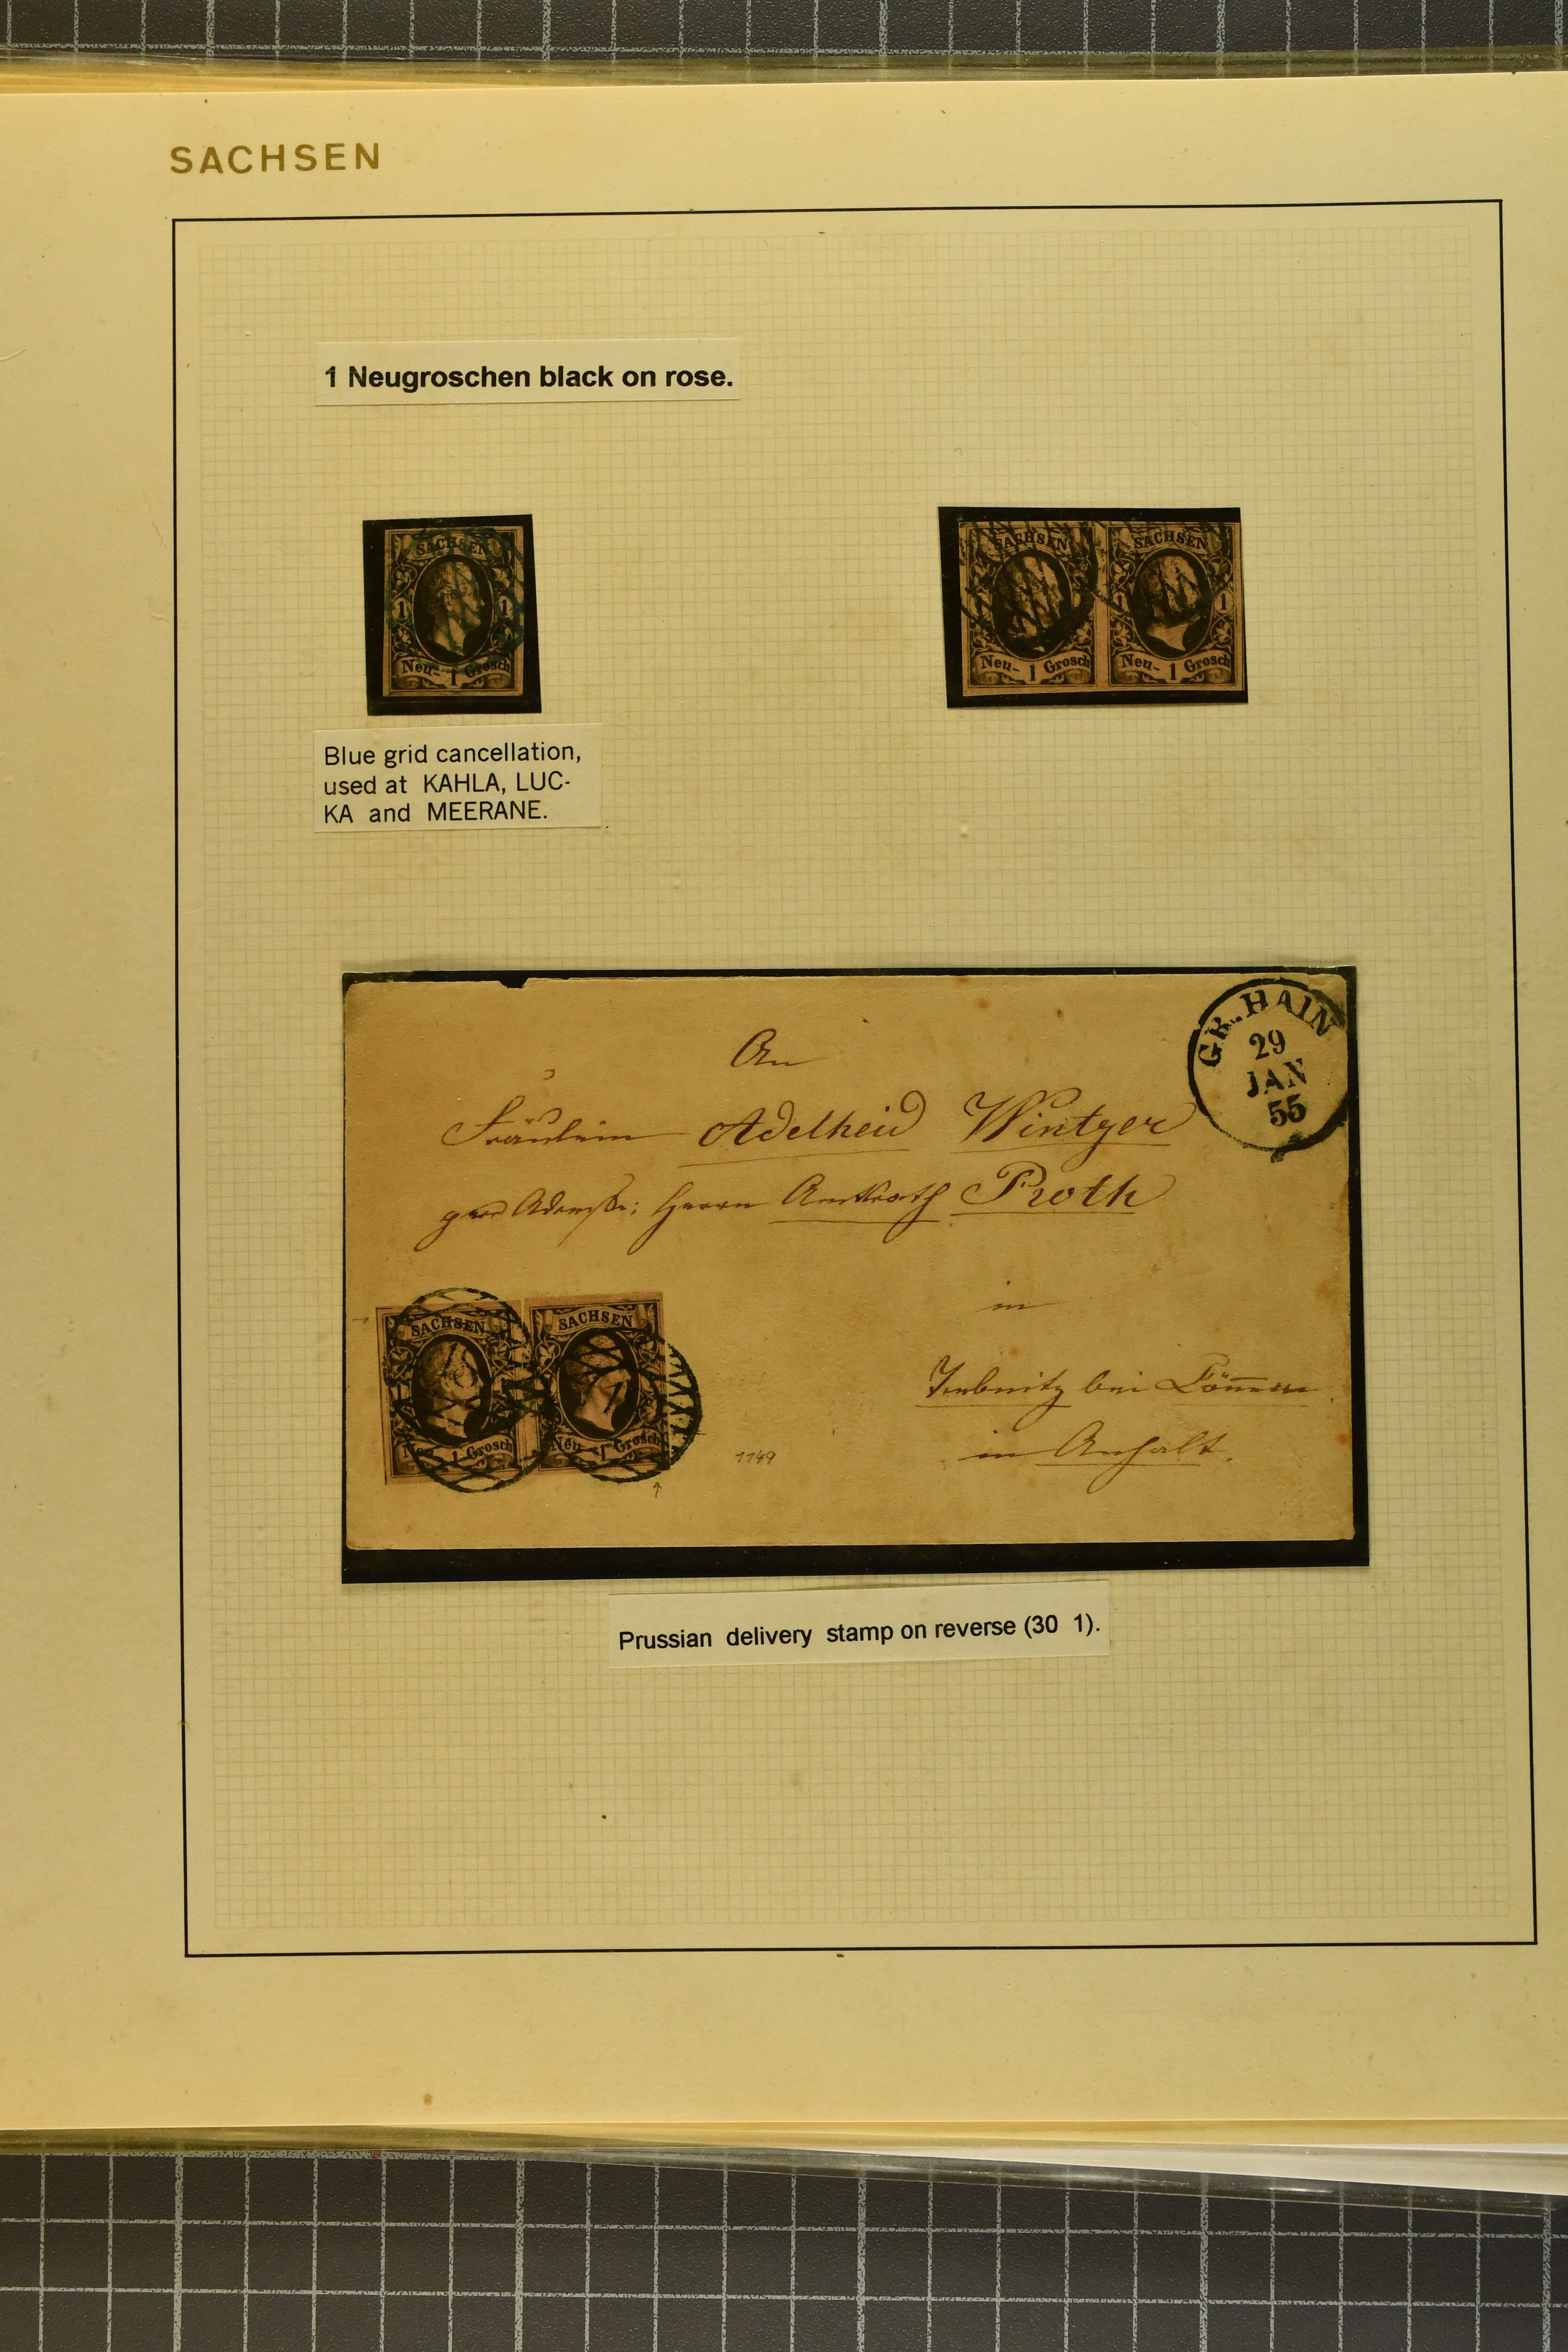 SACHSEN
1 Neugroschen black on rose.
SACHSEN
1 1
Neu- 1 Grosch
SACHSEN SACHSEN
1 1
Neu- 1 Grosch Neu- 1 Grosch
Blue grid cancellation,
used at KAHLA, LUC-
KA and MEERANE.
GR. HAIN
29
JAN
55
An
Fräulein Adelheid Wintzer
Herrn Amtsrath Proth
in
bei
in Anhalt.
SACHSEN SACHSEN
Neu- 1 Grosch Neu- 1 Grosch
1149
Prussian delivery stamp on reverse (30 1).